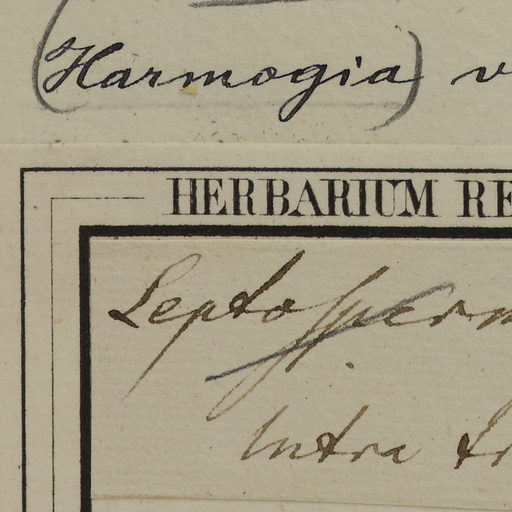 (Harmogia) v
HERBARIUM RE
Leptosperm
Intra tr